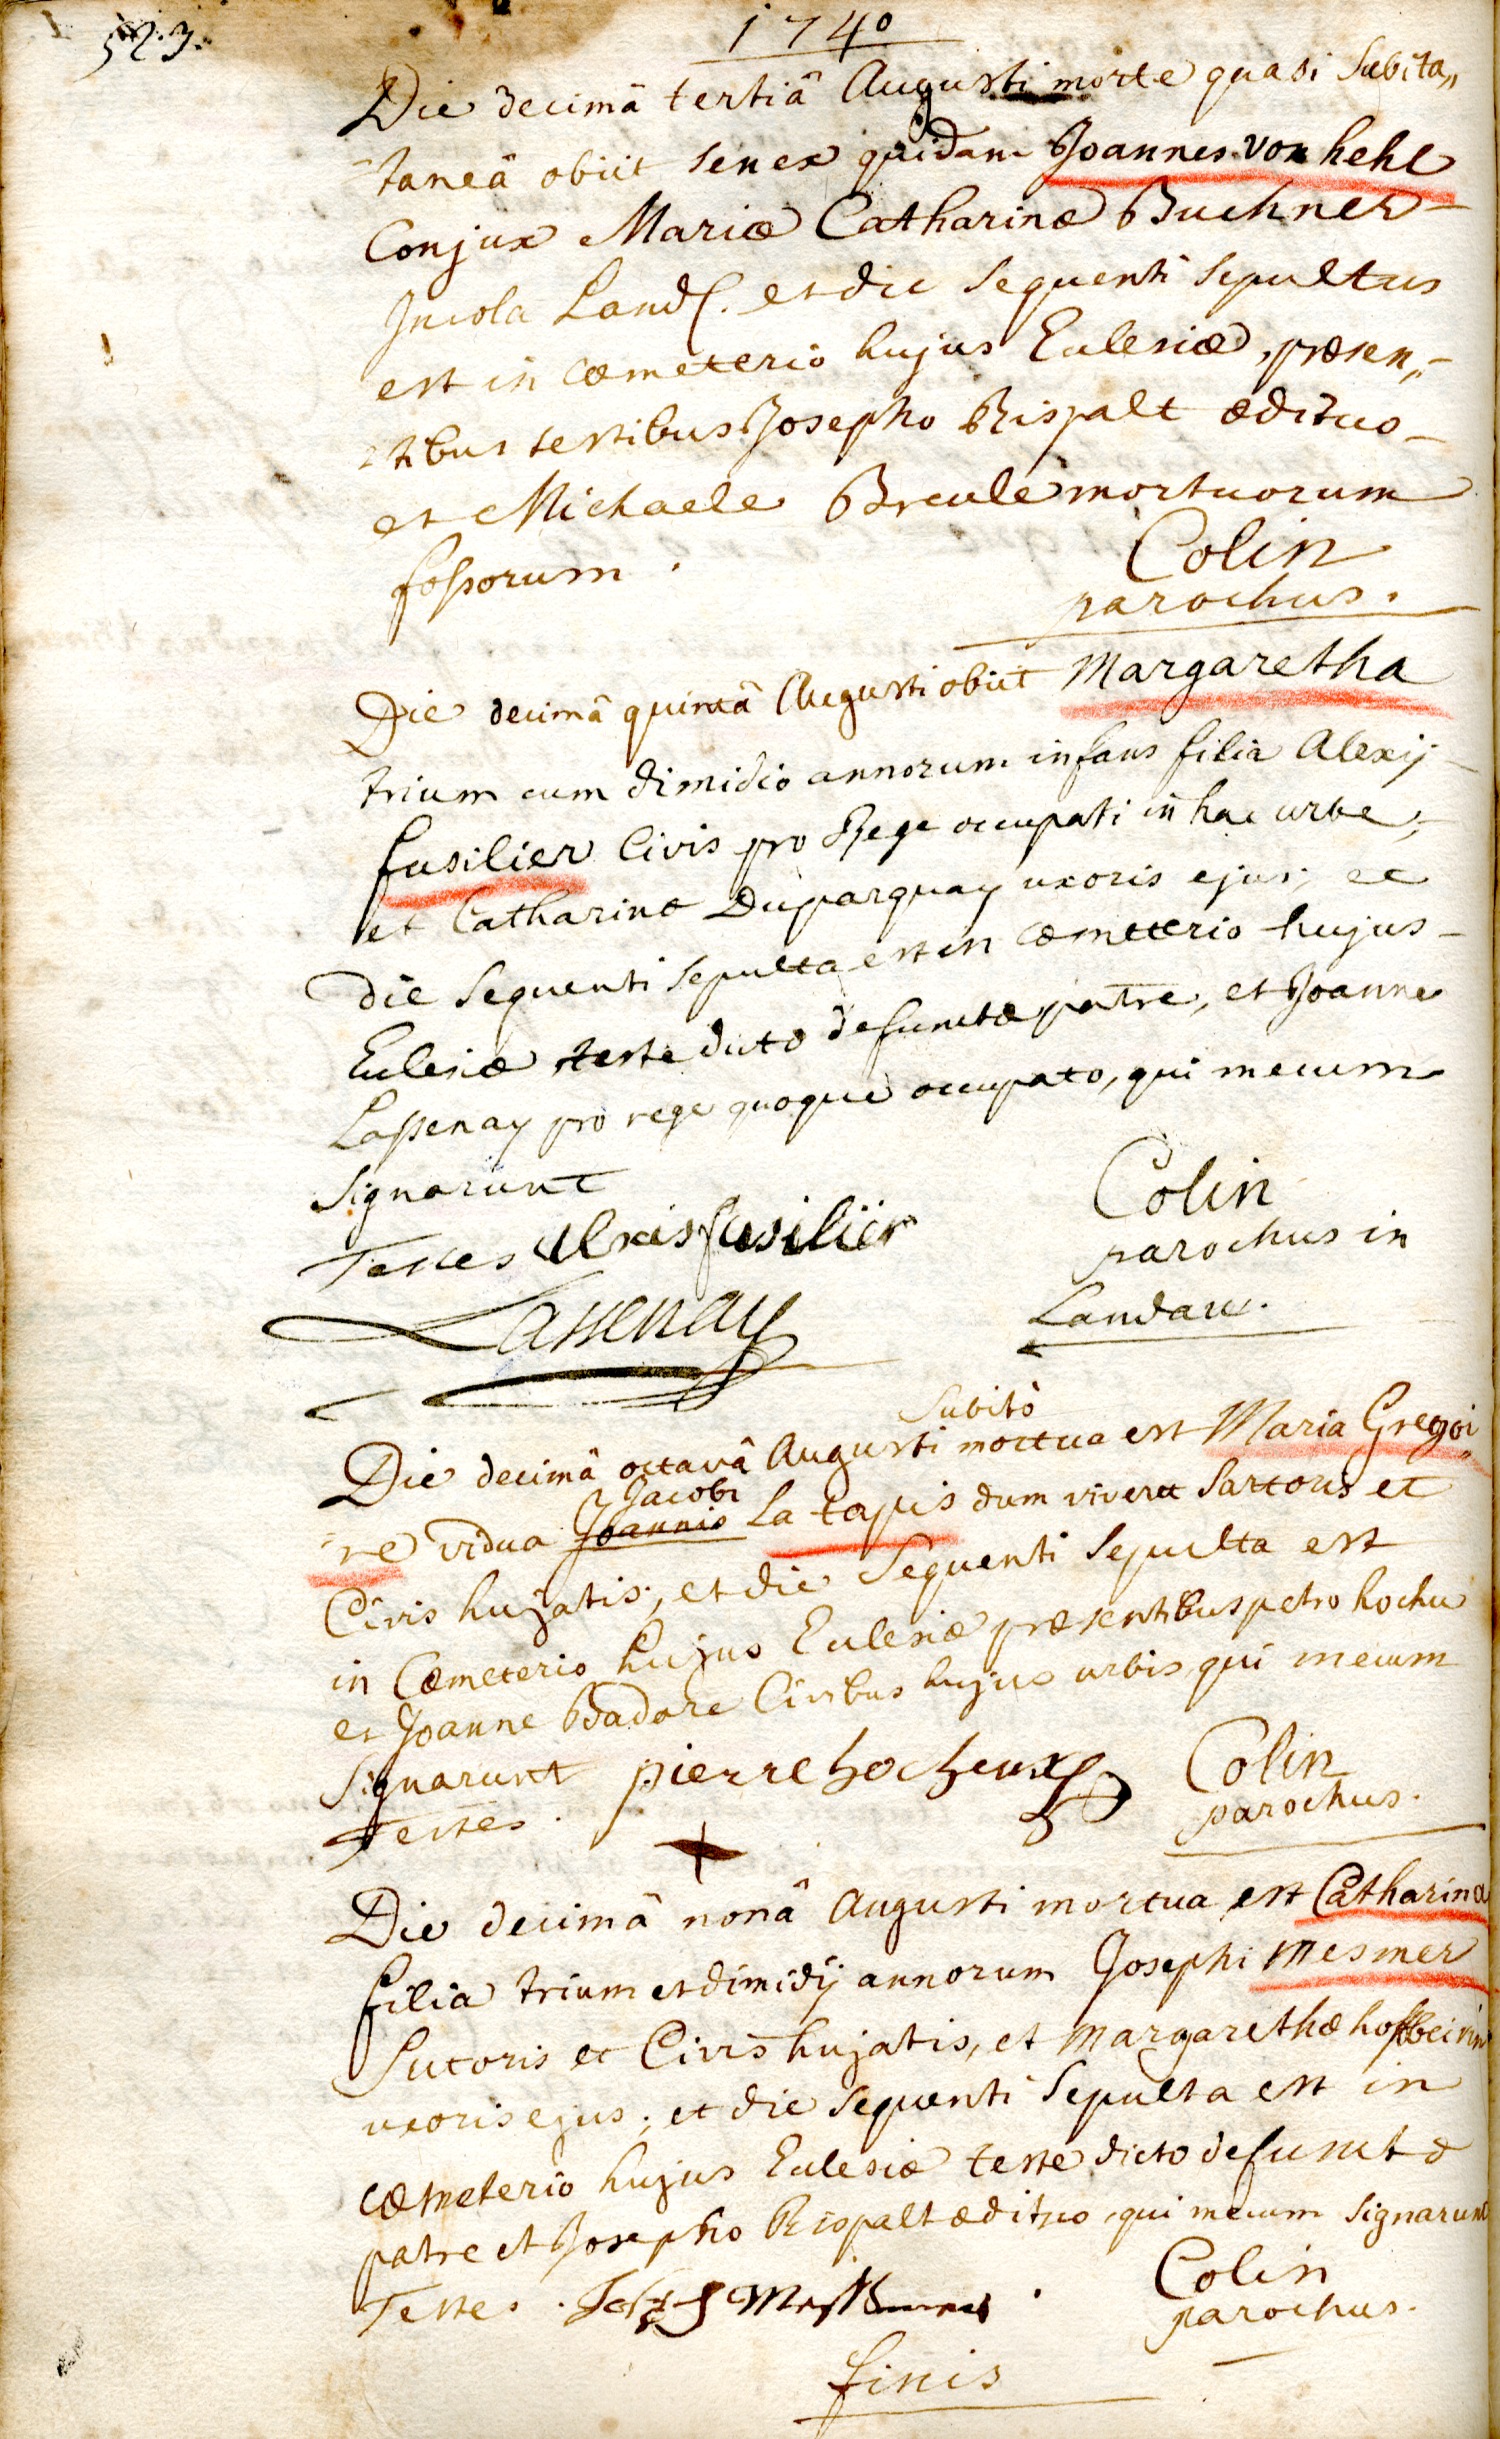 523.
1740
Die decimâ tertiâ Augusti morte quasi subita„
taneâ obiit senex quidam Joannes von hehl
Conjux Mariæ Catharinæ Buchner
Incola Land. et die sequenti sepultus
est in cœmeterio hujus Eclesiæ, præsen„
tibus testibus Josepho Rispalt ædituo
et Michaele Brcule mortuorum
fossorum.
Colin
parochus.
Die decimâ quintâ Augusti obiit Margaretha
trium cum dimidio annorum infans filia Alexij
fusilier Civis pro Rege occupati in hac urbe,
et Catharinæ Duparquay uxoris ejus; et
die sequenti sepulta est in cœmeterio hujus
Eclesiæ teste dicto defunctæ patre, et Joanne
Lassenay pro rege quoque occupato, qui mecum
signarunt
Testes Alexis fusilier
Lassenay
Colin
parochus in
Landau.
Die decimâ octavâ Augusti subitò mortua est Maria Gregoi„
re vidua Joannis Jacobi La tapis dum viveret sartoris et
Civis hujatis; et die sequenti sepulta est
in Cœmeterio hujus Eclesiæ præsentibus petro hochu
et Joanne Badare Civibus hujus urbis, qui mecum
signarunt pierre hocheux
Testes.
Colin
parochus.
Die decimâ nonâ Augusti mortua est Catharina
filia trium et dimidij annorum Josephi Mesmer
Sutoris et Civis hujatis, et Margarethæ
uxoris ejus; et die sequenti sepulta est in
cœmeterio hujus Eclesiæ teste dicto defunctæ
patre et Josepho Rispalt ædituo, qui mecum signarunt
Testes.
Colin
parochus.
finis